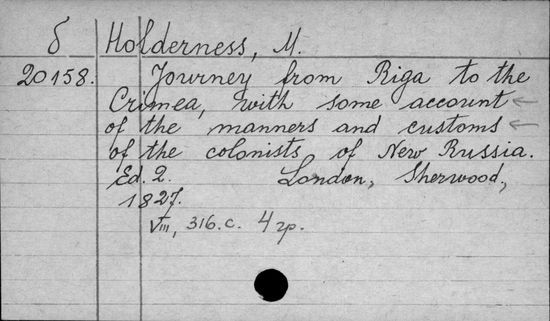 б Holderness, M.
20158. Journey from Riga to the
Crimea, with some account ←
of the manners and customs ←
of the colonists of New Russia.
Ed. 2. London, Sherwood,
1827.
VIII, 316.c. 4 гр.